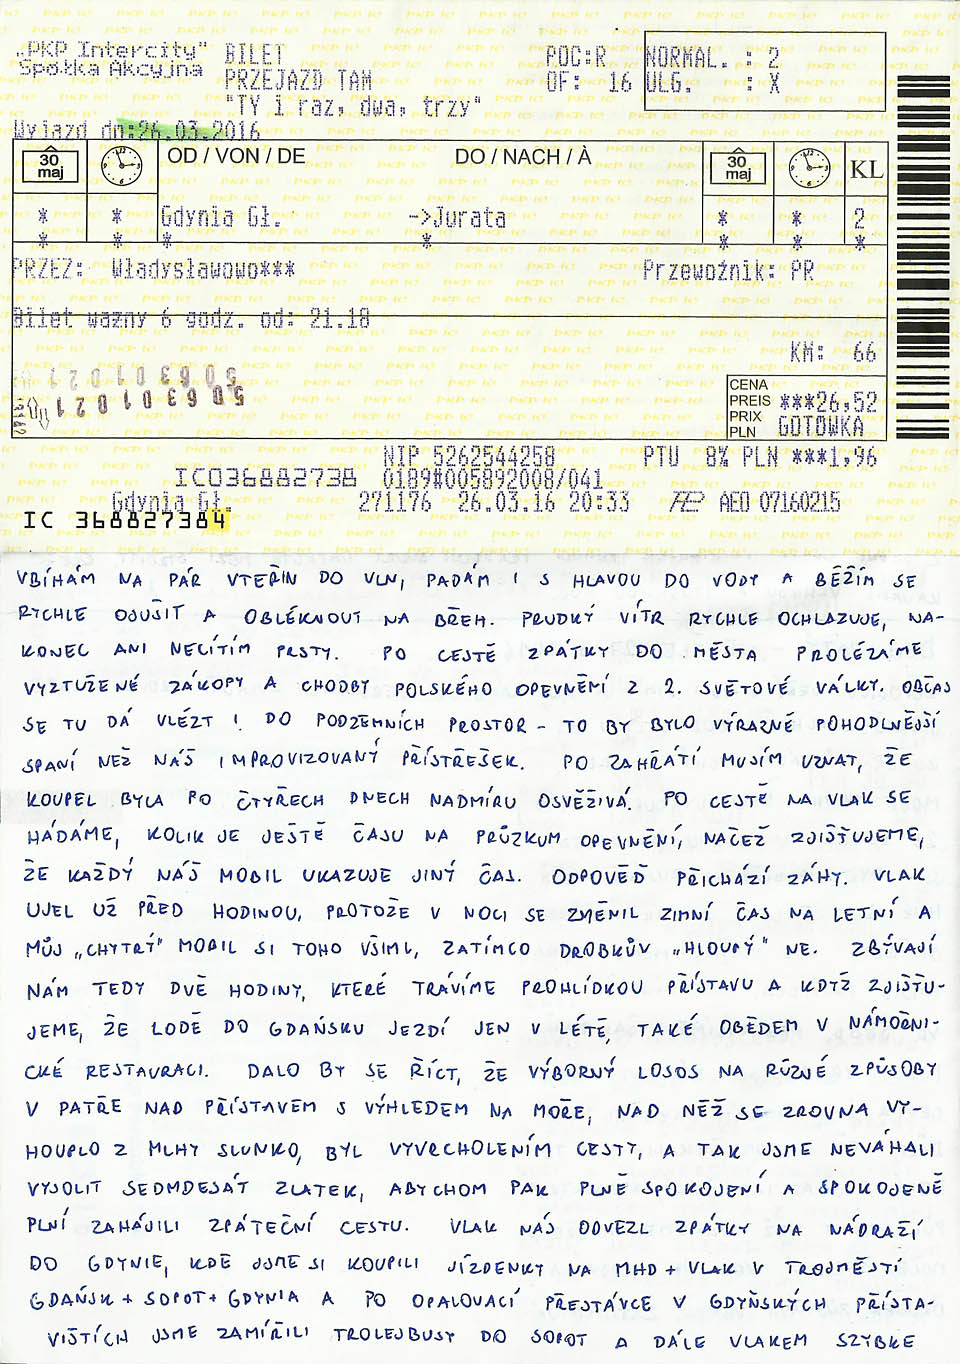 „PKP Intercity"
Spółka Akcyjna
BILET
PRZEJAZD TAM
"TY i raz, dwa, trzy"
POC:R
OF: 16
NORMAL. : 2
ULG. : X
Wyjazd dn:26.03.2016
30 maj
OD / VON / DE
DO / NACH / À
30 maj
KL
* * Gdynia Gł. ->Jurata * * 2
* * * * * * *
PRZEZ: Władysławowo*** Przewoźnik: PR
Bilet ważny 6 godz. od: 21.18
KM: 66
50 6301021
50 6301021
CENA
PREIS
PRIX
PLN
***26,52
GOTÓWKA
NIP 5262544258 PTU 8% PLN ***1,96
IC036882738 0189#005892008/041
Gdynia Gł. 271176 26.03.16 20:33 AEO 07160215
IC 368827384
VBÍHÁM NA PÁR VTEŘIN DO VLN, PADÁM I S HLAVOU DO VODY A BĚŽÍM SE
RYCHLE OSUŠIT A OBLÉKNOUT NA BŘEH. PRUDKÝ VÍTR RYCHLE OCHLAZUJE, NA-
KONEC ANI NECÍTÍM PRSTY. PO CESTĚ ZPÁTKY DO MĚSTA PROLÉZÁME
VYZTUŽENÉ ZÁKOPY A CHODBY POLSKÉHO OPEVNĚNÍ Z 2. SVĚTOVÉ VÁLKY. OBČAS
SE TU DÁ VLÉZT I DO PODZEMNÍCH PROSTOR - TO BY BYLO VÝRAZNĚ POHODLNĚJŠÍ
SPANÍ NEŽ NÁŠ IMPROVIZOVANÝ PŘÍSTŘEŠEK. PO ZAHŘÁTÍ MUSÍM UZNAT, ŽE
KOUPEL BYLA PO ČTYŘECH DNECH NADMÍRU OSVĚŽIVÁ. PO CESTĚ NA VLAK SE
HÁDÁME, KOLIK JE JEŠTĚ ČASU NA PRŮZKUM OPEVNĚNÍ, NAČEŽ ZJIŠŤUJEME,
ŽE KAŽDÝ NÁŠ MOBIL UKAZUJE JINÝ ČAS. ODPOVĚĎ PŘICHÁZÍ ZÁHY. VLAK
UJEL UŽ PŘED HODINOU, PROTOŽE V NOCI SE ZMĚNIL ZIMNÍ ČAS NA LETNÍ A
MŮJ „CHYTRÝ" MOBIL SI TOHO VŠIML, ZATÍMCO DROBKŮV „HLOUPÝ" NE. ZBÝVAJÍ
NÁM TEDY DVĚ HODINY, KTERÉ TRÁVÍME PROHLÍDKOU PŘÍSTAVU A KDYŽ ZJIŠŤU-
JEME, ŽE LODĚ DO GDAŃSKU JEZDÍ JEN V LÉTĚ, TAKÉ OBĚDEM V NÁMOŘNI-
CKÉ RESTAURACI. DALO BY SE ŘÍCT, ŽE VÝBORNÝ LOSOS NA RŮZNÉ ZPŮSOBY
V PATŘE NAD PŘÍSTAVEM S VÝHLEDEM NA MOŘE, NAD NĚŽ SE ZROVNA VY-
HOUPLO Z MLHY SLUNKO, BYL VYVRCHOLENÍM CESTY, A TAK JSME NEVÁHALI
VYSOLIT SEDMDESÁT ZLATEK, ABYCHOM PAK PLNĚ SPOKOJENÍ A SPOKOJENĚ
PLNÍ ZAHÁJILI ZPÁTEČNÍ CESTU. VLAK NÁS ODVEZL ZPÁTKY NA NÁDRAŽÍ
DO GDYNIE, KDE JSME SI KOUPILI JÍZDENKY NA MHD + VLAK V TROJMĚSTÍ
GDAŃSK + SOPOT + GDYNIA A PO OPALOVACÍ PŘESTÁVCE V GDYŇSKÝCH PŘÍSTA-
VIŠTÍCH JSME ZAMÍŘILI TROLEJBUSY DO SOPOT A DÁLE VLAKEM SZYBKE